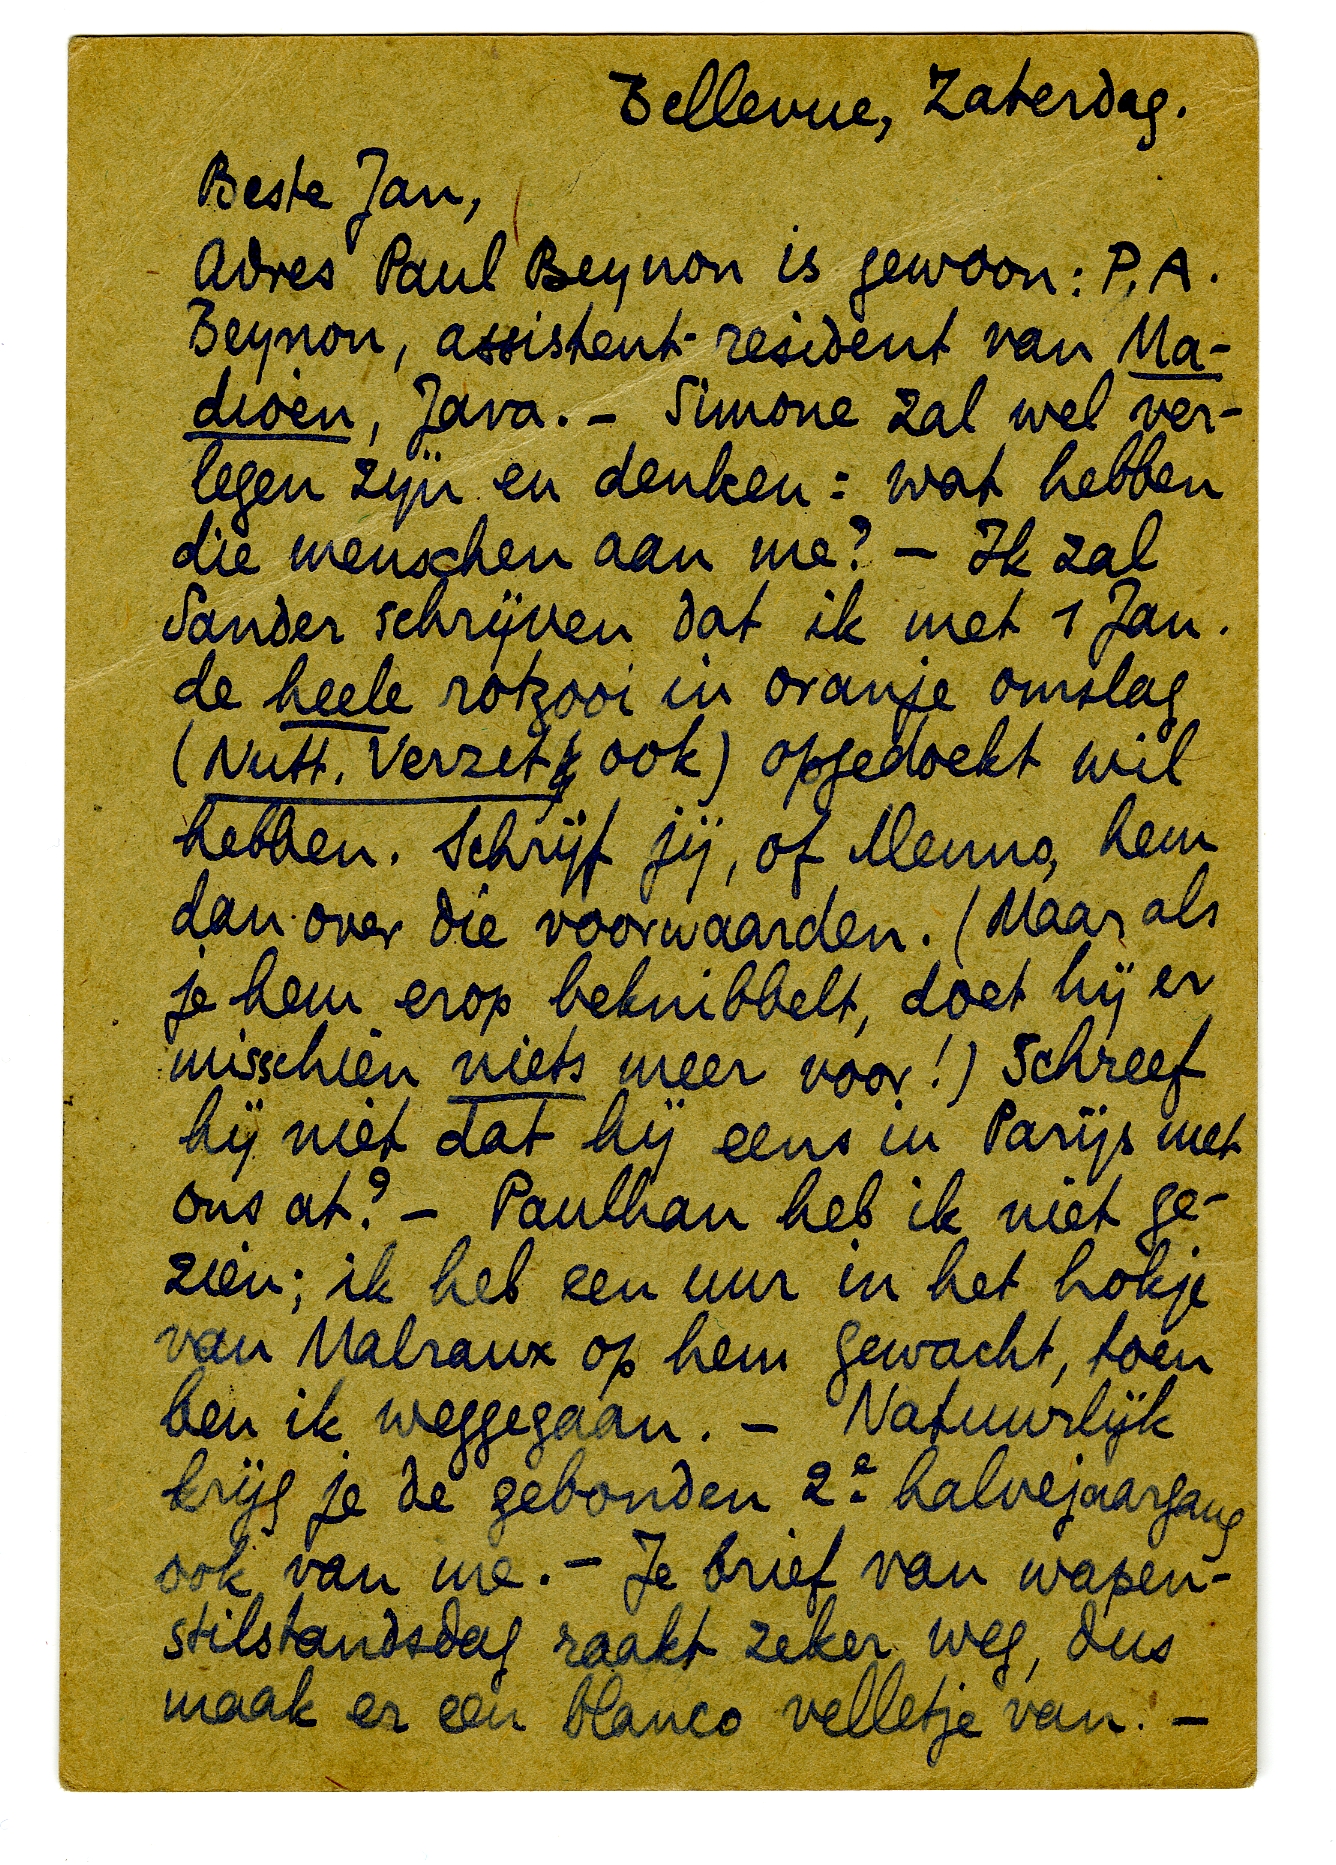 Bellevue, Zaterdag.
Beste Jan,
Adres Paul Beynon is gewoon: P.A.
Beynon, assistent-resident van Ma-
dioen, Java. – Simone zal wel ver-
legen zijn en denken: wat hebben
die menschen aan me? – Ik zal
Sander schrijven dat ik met 1 Jan.
de heele rotzooi in oranje omslag
(Nutt. Verzet ook) opgedoekt wil
hebben. Schrijf jij, of Menno, hem
dan over die voorwaarden. (Maar als
je hem erop beknibbelt, doet hij er
misschien niets meer voor!) Schreef
hij niet dat hij eens in Parijs met
ons at? – Paulhan heb ik niet ge-
zien; ik heb een uur in het hokje
van Malraux op hem gewacht, toen
ben ik weggegaan. – Natuurlijk
krijg je de gebonden 2e halvejaargang
ook van me. – Je brief van wapen-
stilstandsdag raakt zeker weg, dus
maak er een blanco velletje van. –